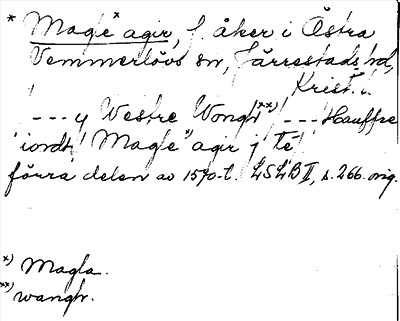 * Magle x) agir, f. åker i Östra
Vemmerlövs sn, Järrestads hd,
Krist. l.
"--- y Westre Wongh xx) --- Hauffre
iordt Magle x) agir j te"
förra delen av 1570-t. LSLB II, s. 266. orig.
x) Magla.
xx) wangh.